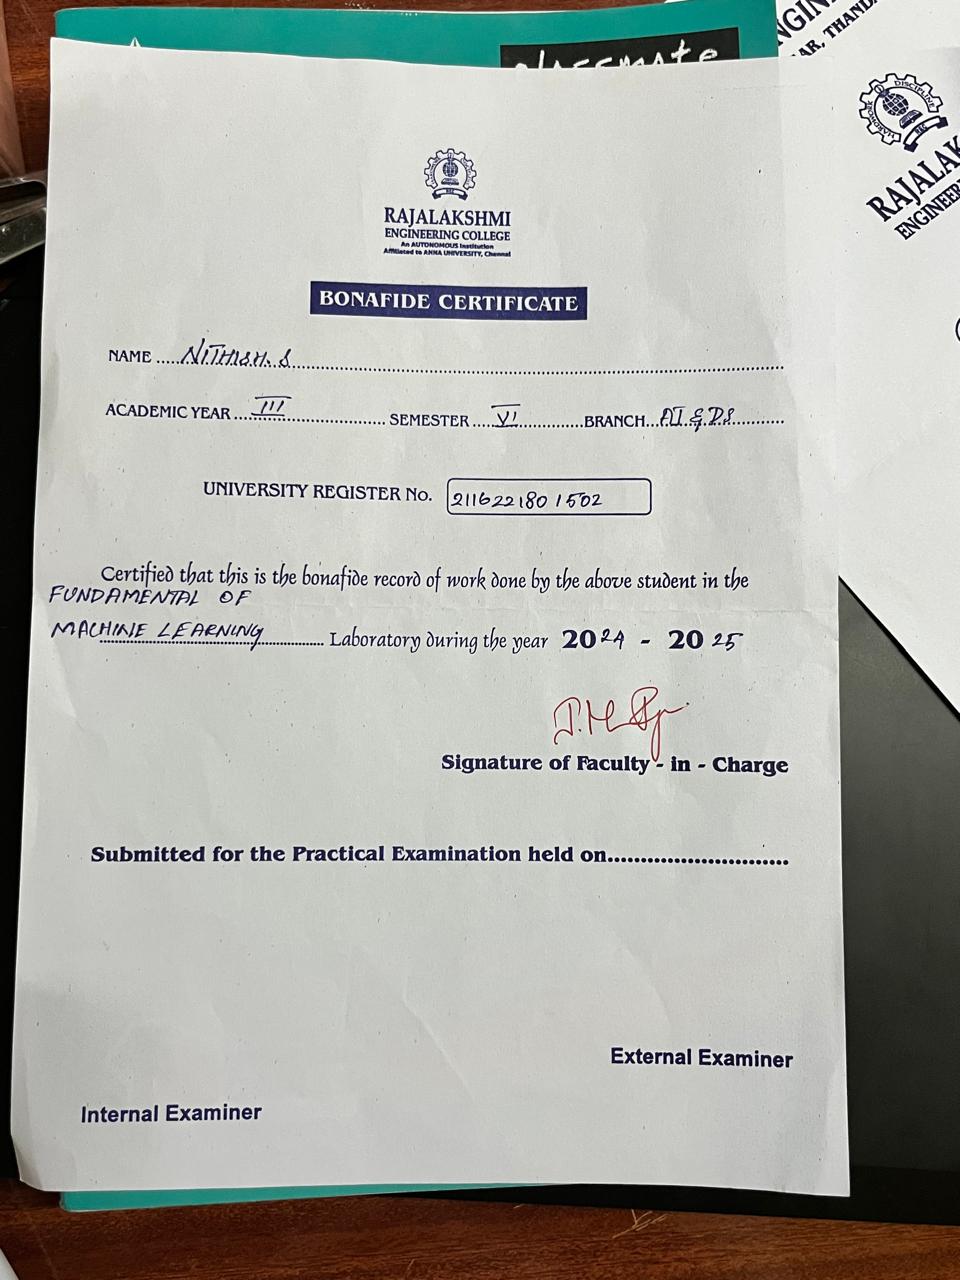 classmate
RAJALAKSHMI
ENGINEERING COLLEGE
An AUTONOMOUS Institution
Affiliated to ANNA UNIVERSITY, Chennai
BONAFIDE CERTIFICATE
NAME .....NITHISH. S..........
ACADEMIC YEAR ....III.......... SEMESTER ....VI.......... BRANCH...AI & DS..........
UNIVERSITY REGISTER No. 2116221801502
Certified that this is the bonafide record of work done by the above student in the
FUNDAMENTAL OF
MACHINE LEARNING .......... Laboratory during the year 2024 - 2025
Signature of Faculty - in - Charge
Submitted for the Practical Examination held on..............................
External Examiner
Internal Examiner
DISCIPLINE
RAJALAK
ENGINEER
AR, THAND